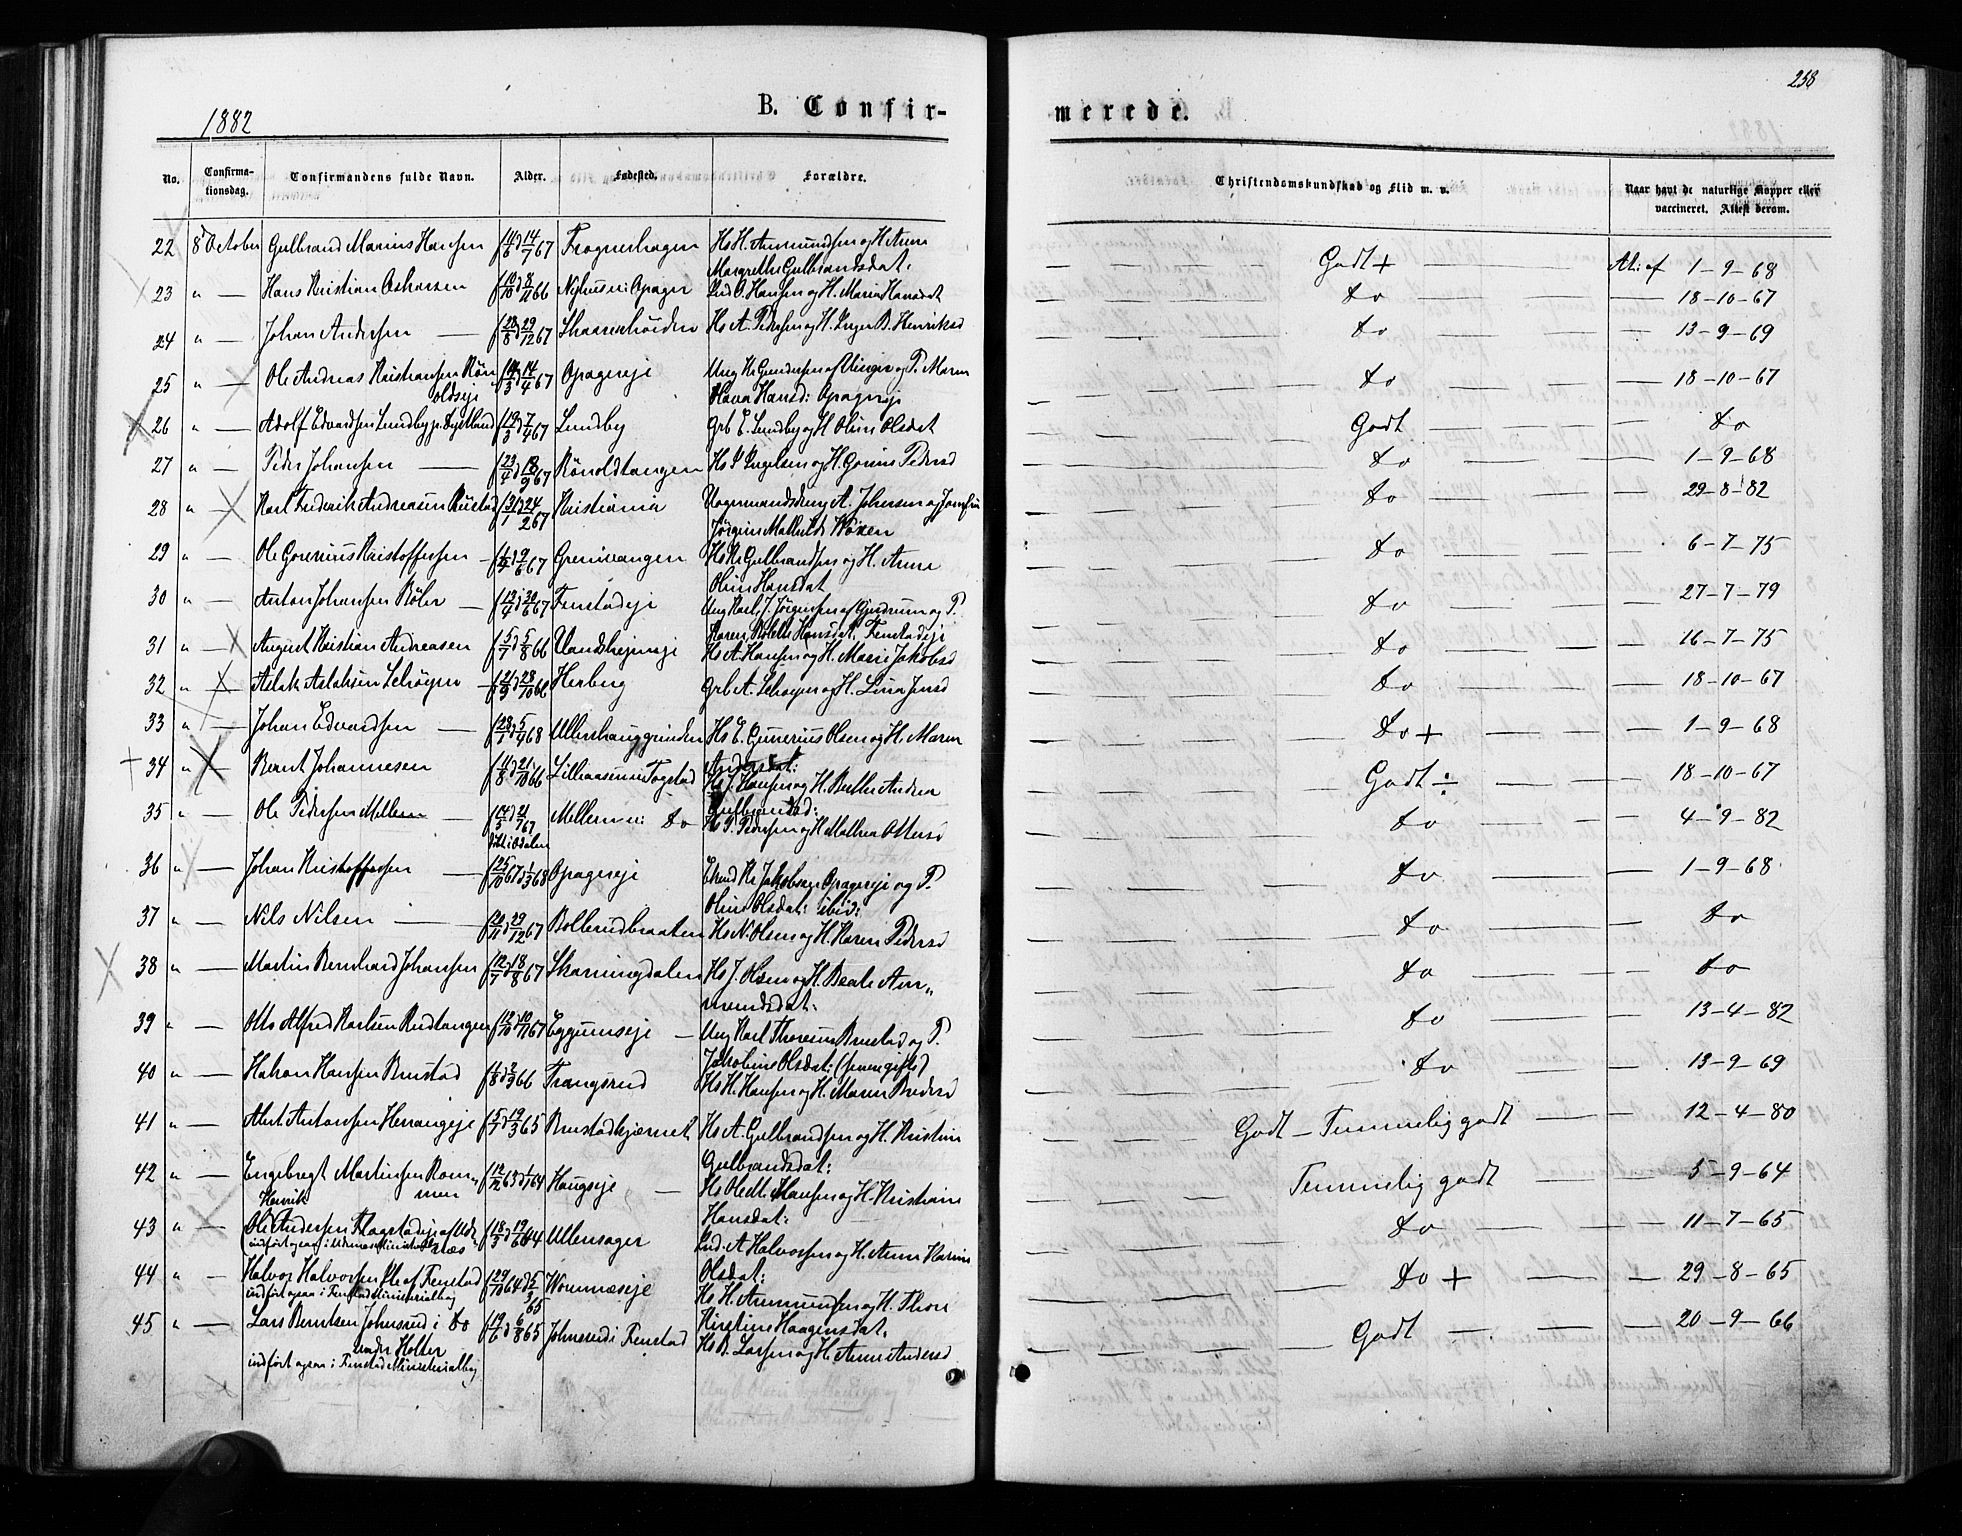 1882
B. Confir-
merede.
238
No.
Confirma-
tionsdag.
Confirmandens fulde Navn.
Alder.
Fødested.
Forældre.
Christendomskundskab og Flid m. v.
Naar havt de naturlige Kopper eller
vaccineret. Attest derom.
22 8 October Gulbrand Marius Hansen 14/6 d 14/7 67 Frognerhagen Hs H. Ammundsen og H. Anne
Margrethe Gulbrandsdat: Godt + At: af 1-9-68
23 " Hans Kristian Oskarsen 66 Opager Ind O. Hansen og H. Marie Hansdt do 18-10-67
24 " Johan Andersen 28/8 d 29/12 67 Hs A. Pedersen og H. Inger B. Henriksd do 13-9-69
25 " Ole Andreas Kristiansen Rön-
oldseje 67 Opagereje Ung K. Gundersen af Ringer og P. Maren
Olava Hansd: Opagereje do 18-10-67
26 " Adolf Edvardsen Lundby 19/3 d 7/4 67 Lundby Grb E. Lundby og H. Oline Olsdat Godt do
27 " Peder Johansen 23/4 67 Rönoldtangen Hs J. Engelsen og H. Gorine Pedersd do 1-9-68
28 " Karl Frederik Andreasen Rustad 31/1 d 24/2 67 Kristiania A. Johansen og Jomfru
Jørgine Mathilde do 29-8-82
29 " Ole Gorenius Kristoffersen 67 Grenivangen Hs K. Gulbrandsen og H. Anne
Oline Hansdat do 6-7-75
30 " Anton Johansen Röler 12/4 d 30/6 67 Fenstadeje Ung Karl J. Jørgensen af Gjerdrum og P.
Karen Hansdat. Fenstadeje do 27-7-79
31 " August Kristian Andreasen 5/7 d 5/8 66 Hs A. Hansen og H. Marie Jakobsd do 16-7-75
32 " Aslak Aslaksen Lehøgne 66 Herberg Grb A. og H. Lina Jensd do 18-10-67
33 " Johan Edvardsen 28/1 d 5/4 68 Ullershauggrinden Hs E. Gunerius Olsen og H. Maren
Andersdat: do + 1-9-68
34 " Bernt Johannesen 14/8 d 21/10 66 Fogstad Hs J. Hansen og H. Berthe Andrea
Gulbrandsd: Godt ÷ 18-10-67
35 " Ole Pedersen Mellem 14/5 d 21/7 67
döbt i Odalen Mellem i do Hs P. Pedersen og H. Mathea Ottersd do 4-9-82
36 " Johan Kristoffersen 25/10 67 d 1/3 68 Opagereje Enkmd K. Jakobsen Opagereje og P.
Oline Olsdat: ibid: do 1-9-68
37 " Nils Nilsen 29/12 67 Bollerudbraaten Hs N. Olsen og H. Karen Pedersd do do
38 " Martin Bernhard Johansen 12/7 d 18/8 67 Skaningdalen Hs J. Olsen og H. Beate Am-
mundsdat: do do
39 " Otto Alfred Karlsen Rudtangen 12/10 d 10/11 67 Eggumseje Ung Karl Thoresen Brustad og P.
Jakobine Olsdat: (senere gifte) do 13-4-82
40 " Hakon Hansen Brustad 1/8 d 2/9 66 Trangsrud Hs H. Hansen og H. Maren Bredesd do 13-9-69
41 " Abet. Antonsen Herrangeje 5/7 d 19/3 65 Brustadkjernet Hs A. Gulbrandsen og H. Kristine
Gulbrandsdat: Godt - Temmelig godt 12-4-80
42 " Engebregt Martinsen Rom-
men 12/12 63 d 1/1 64 Haugseje Hs Ole M. Hansen og H. Kristiane
Hansdat: Temmelig godt 5-9-64
43 " Henrik
Ole Andersen Flagstadeje af Ud-
næs
indført ogsaa i Udenæs Ministerialb 18/3 d 19/6 64 Ullensager Ind. A. Halvorsen og H. Anne Karine
Olsdat: do 11-7-65
44 " Halvor Halvorsen Pl af Fenstad
indført ogsaa i Fenstad Ministerialbog 29/10 64 d 5/2 65 Wormnæseje Hs H. Ammundsen og H. Thore
Kirstine Haagensdat. do + 29-8-65
45 " Lars Berntsen Johnsrud i do
under Holter
indført ogsaa i Fenstad Ministerialbog 19/6 d 6/8 65 Johnsrud i Fenstad Hs B. Larsen og H. Anne Andersd Godt 20-9-66